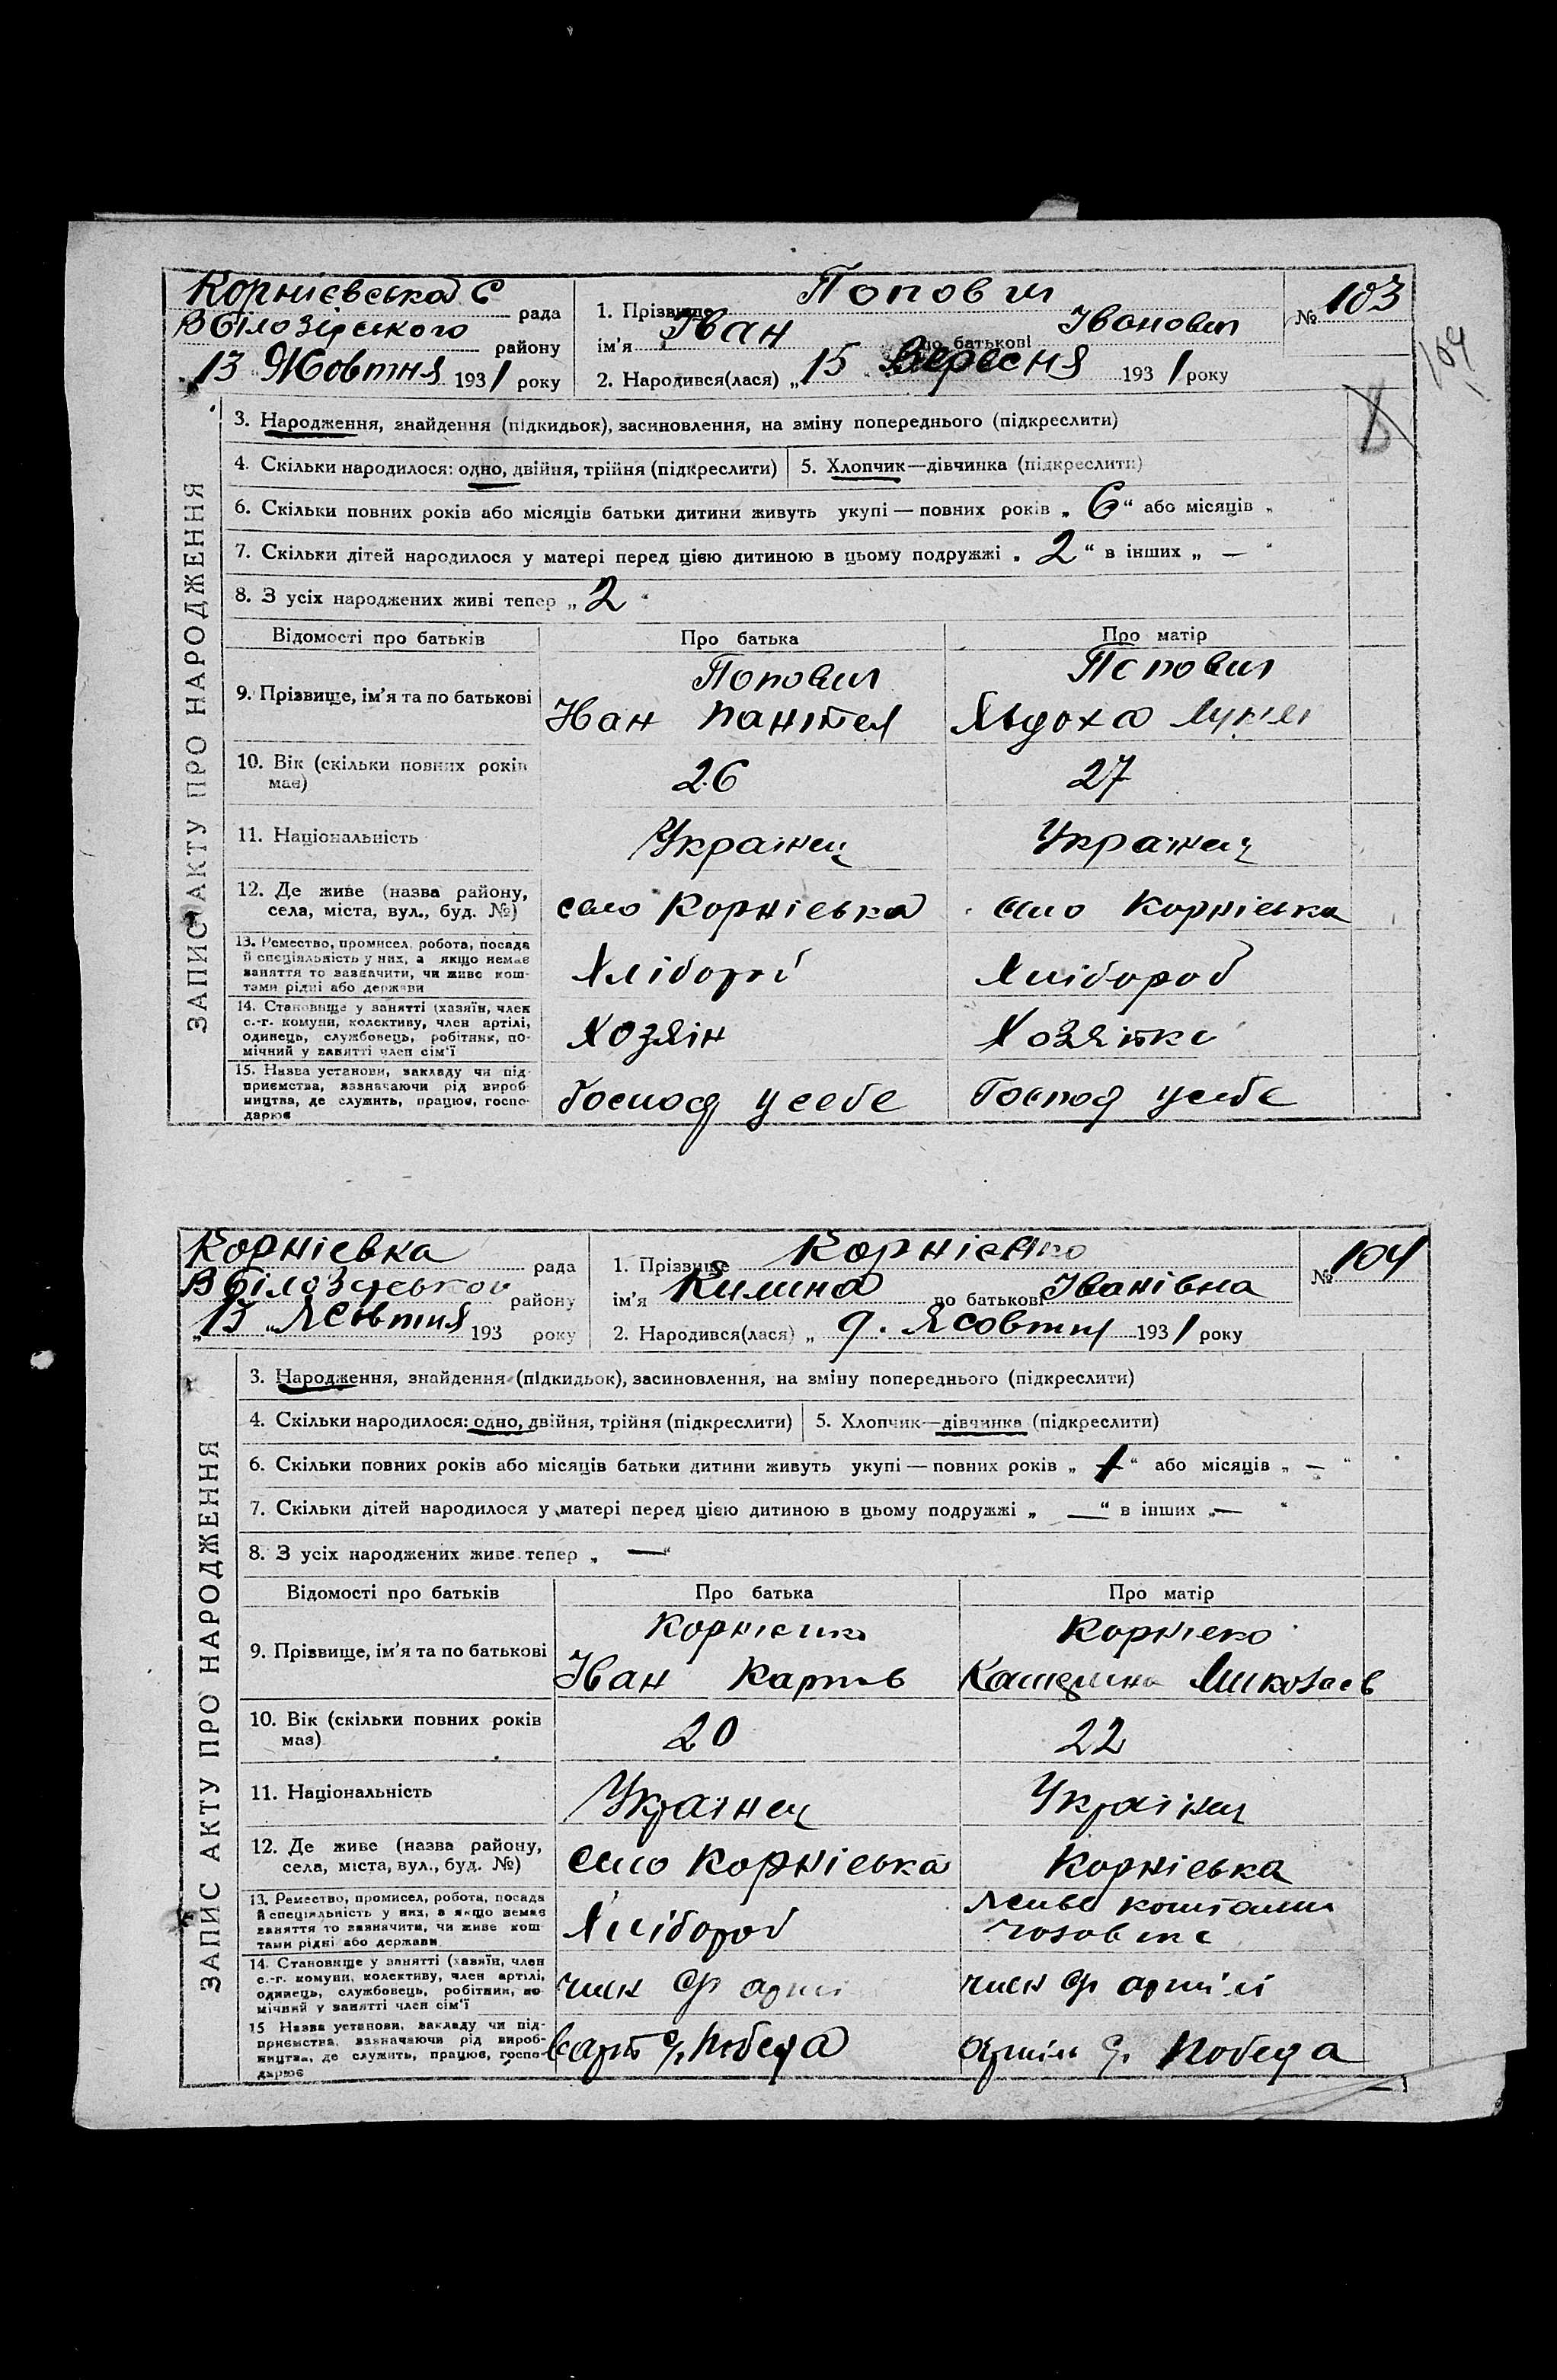 Корнієвська С рада
В Білозірського району
13 Жовтня 1931 року
1. Прізвище Попович
ім’я Іван по батькові Іванович
2. Народився(лася) „ 15 Вересня 1931 року
№ 103
104
ЗАПИС АКТУ ПРО НАРОДЖЕННЯ
3. Народження, знайдення (підкидьок), засиновлення, на зміну попереднього (підкреслити)
4. Скільки народилося: одно, двійня, трійня (підкреслити) 5. Хлопчик—дівчинка (підкреслити)
6. Скільки повних років або місяців батьки дитини живуть укупі — повних років „ 6 “ або місяців „ “
7. Скільки дітей народилося у матері перед цією дитиною в цьому подружжі „ 2 “ в інших „ — “
8. З усіх народжених живі тепер „ 2 “
Відомості про батьків Про батька Про матір
Попович Попович
9. Прізвище, ім’я та по батькові Іван Явдоха
10. Вік (скільки повних років 26 27
має)
11. Національність Українец Українец
12. Де живе (назва району, село Корнієвка село Корнієвка
села, міста, вул., буд. №)
13. Ремество, промисел, робота, посада
й спеціяльність у них, а якщо немає Хлібороб Хлібороб
заняття то зазначити, чи живе кош-
тами рідні або держави
14. Становище у занятті (хазяїн, член
с.-г. комуни, колективу, член артілі, Хозяін Хозяітка
одинець, службовець, робітник, по-
мічний у занятті член сім’ї
15. Назва установи, закладу чи під-
приємства, зазначаючи рід вироб- Господ у себе Господ у себе
ництва, де служить, працює, госпо-
дарює
Корнієвка рада
В Білозерськой району
„13 „ Жовтня 193 року
1. Прізвище Корнієнко
ім’я Килина по батькові Іванівна
2. Народився(лася) „ 9. Жовтня 1931 року
№ 104
ЗАПИС АКТУ ПРО НАРОДЖЕННЯ
3. Народження, знайдення (підкидьок), засиновлення, на зміну попереднього (підкреслити)
4. Скільки народилося: одно, двійня, трійня (підкреслити) 5. Хлопчик—дівчинка (підкреслити)
6. Скільки повних років або місяців батьки дитини живуть укупі — повних років „ 1 “ або місяців „ — “
7. Скільки дітей народилося у матері перед цією дитиною в цьому подружжі „ — “ в інших „ — “
8. З усіх народжених живе тепер „ — “
Відомості про батьків Про батька Про матір
Корнієнко Корнієко
9. Прізвище, ім’я та по батькові Іван Карпов Катерина Миколаєв
10. Вік (скільки повних років 20 22
має)
11. Національність Українец Українец
12. Де живе (назва району, село Корнієвка Корнієвка
села, міста, вул., буд. №)
13. Ремество, промисел, робота, посада живе коштами
й спеціяльність у них, а якщо немає Хлібороб
заняття то зазначити, чи живе кош-
тами рідні або держави
14. Становище у занятті (хазяїн, член
с.-г. комуни, колективу, член артілі, член артілі член артілі
одинець, службовець, робітник, по-
мічний у занятті член сім’ї
15 Назва установи, закладу чи під-
приємства, зазначаючи рід вироб- Победа Победа
ництва, де служить, працює, госпо-
дарює